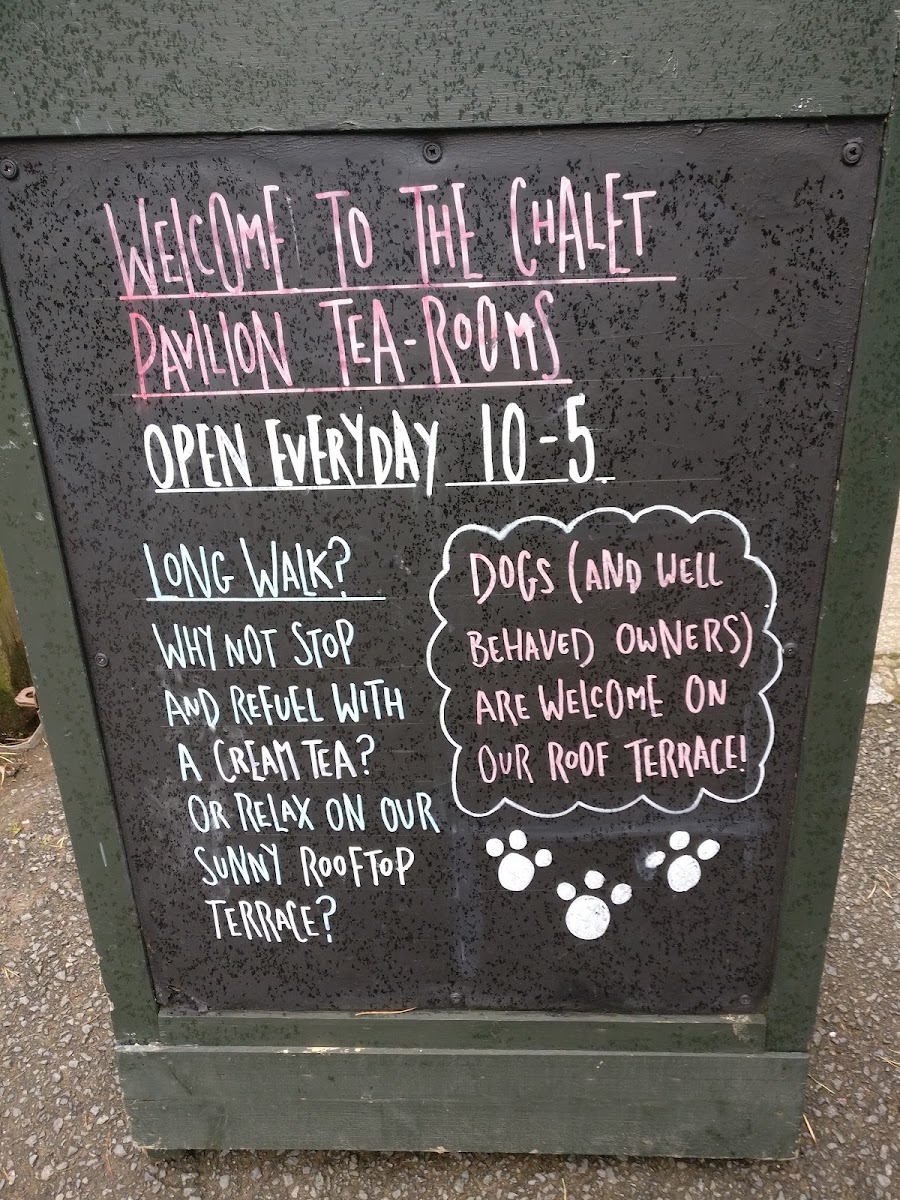 WELCOME TO THE CHALET
PAVILION TEA-ROOMS
OPEN EVERYDAY 10-5
LONG WALK?
WHY NOT STOP
AND REFUEL WITH
A CREAM TEA?
OR RELAX ON OUR
SUNNY ROOFTOP
TERRACE?
DOGS (AND WELL
BEHAVED OWNERS)
ARE WELCOME ON
OUR ROOF TERRACE!